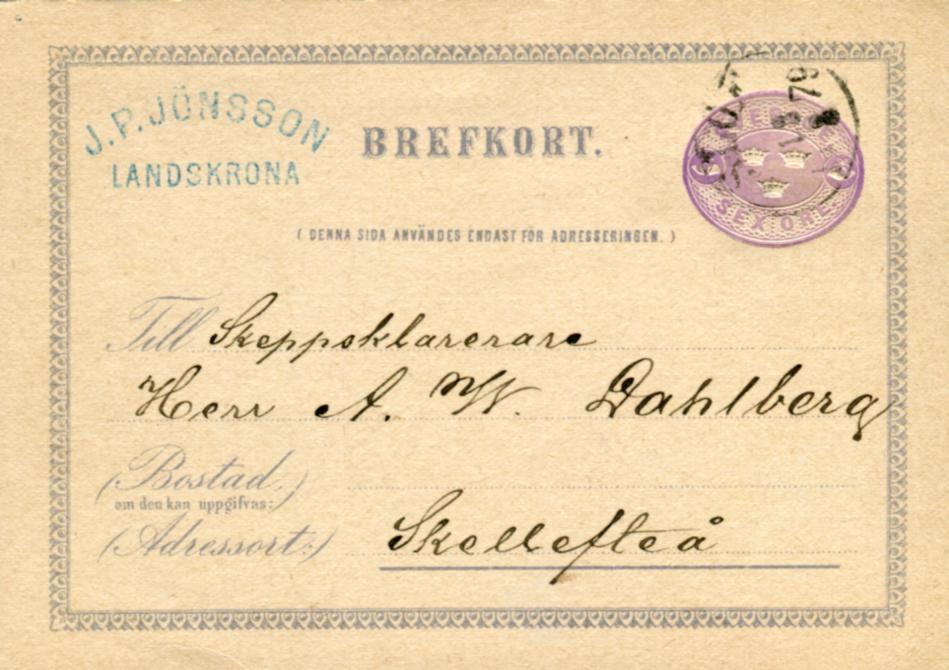 J. P. JÖNSSON
LANDSKRONA
BREFKORT.
SEX ÖRE
79
( DENNA SIDA ANVÄNDES ENDAST FÖR ADRESSERINGEN. )
Till Skeppsklarerare
Herr A. W. Dahlberg
(Bostad,)
om den kan uppgifvas:
(Adressort:) Skellefteå